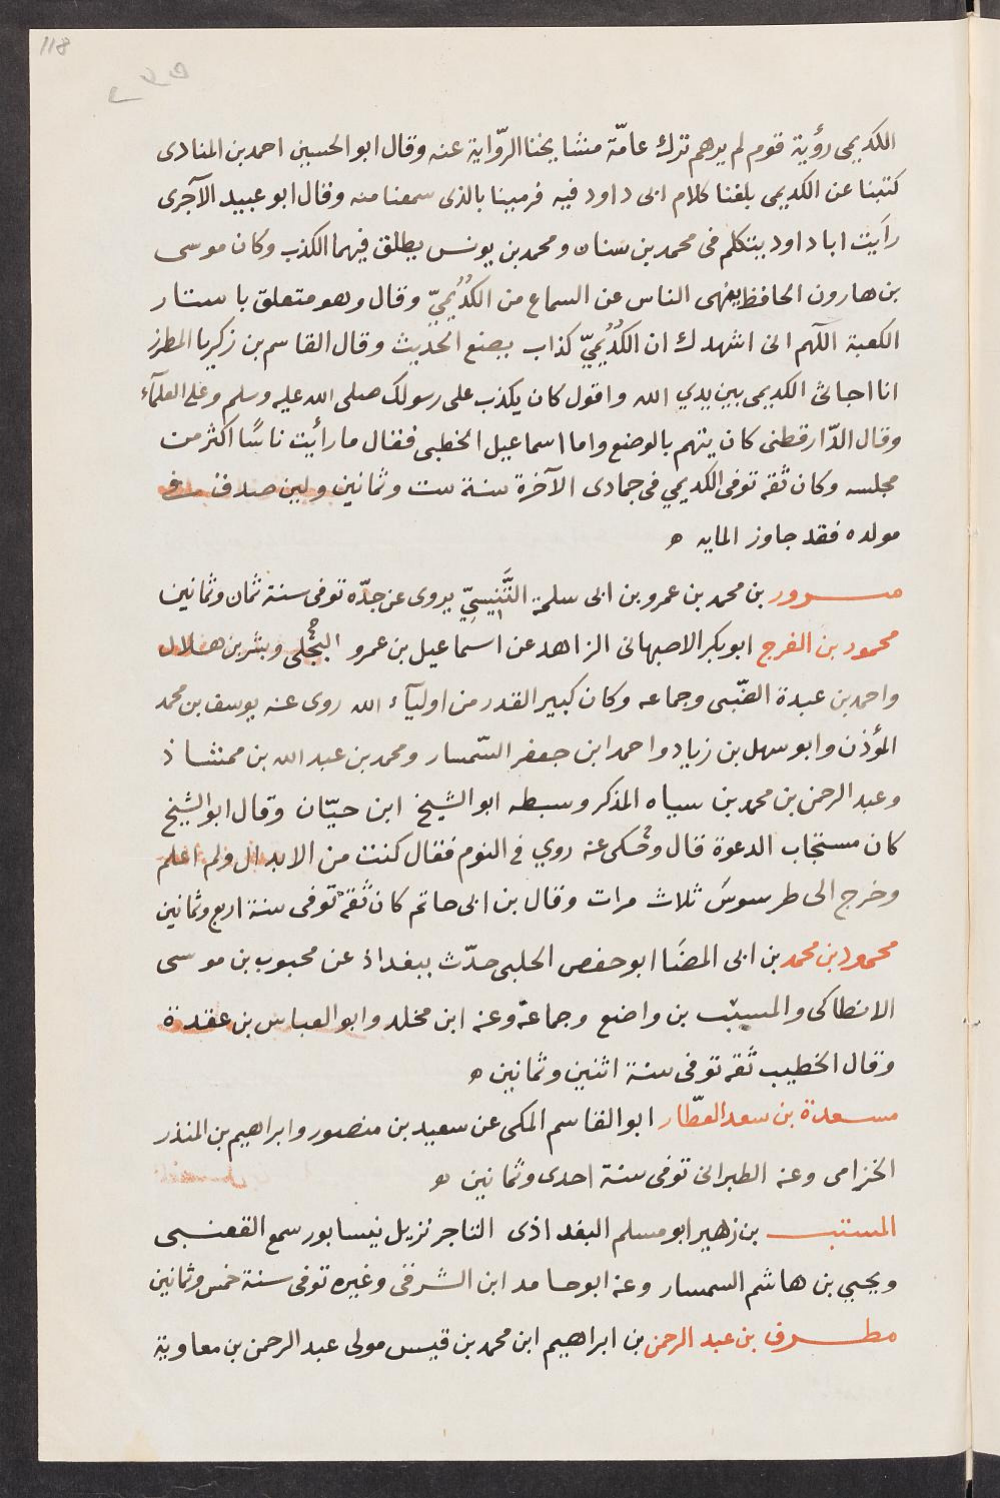 118
اللكديمى رؤية قوم لم يرهم ترك عامّة مشايخنا الرّواية عنه وقال ابو الحسين احمد بن المنادى
كتبنا عن الكديمى بلغنا كلام ابى داود فيه فرمينا بالذى سمعنا منه وقال ابو عبيد الآجرى
رأيت ابا داود يتكلم فى محمد بن سنان ومحمد بن يونس يطلق فيهما الكذب وكان موسى
بن هارون الحافظ ينهى الناس عن السماع من الكُدَيْمِيّ وقال وهو متعلق باستار
الكعبة اللهم انى اشهدك ان الكُدَيْمِيّ كذاب يصنع الحديث وقال القاسم بن زكريا المطرز
انا اجاثى الكديمى بين يدي الله واقول كان يكذب على رسولك صلى الله عليه وسلم وعلى العلمآء
وقال الدّارقطنى كان يتهم بالوضع واما اسماعيل الخطبى فقال ما رأيت ناسًا اكثر من
مجلسه وكان ثقة توفى الكديمي فى جمادى الآخرة سنة ست وثمانين ولين صدق فى
مولده فقد جاوز المايه ه
مسرور بن محمد بن عمرو بن ابى سلمة التِّنِيسِيّ يروى عن جدّه توفى سنة ثمان وثمانين
محمود بن الفرج ابو بكر الاصبهانى الزاهد عن اسماعيل بن عمرو البجُلى وبشر بن هلال
واحمد بن عبدة الضّبى وجماعه وكان كبير القدر من اوليآء الله روى عنه يوسف بن محمد
المؤذن وابو سهل بن زياد واحمد ابن جعفر السّمسار ومحمد بن عبد الله بن ممشاذ
وعبد الرحمن بن محمد بن سياه المذكر وسبطه ابو الشيخ ابن حيّان وقال ابو الشيخ
كان مستجاب الدعوة قال وحُكى عنه روي فى النوم فقال كنت من الابدال ولم اعلم
وخرج الى طرسوسَ ثلاث مرات وقال بن ابى حاتم كان ثقة توفى سنة اربع وثمانين
محمود بن محمد بن ابى المضَا ابو حفص الحلبى حدّث ببغداذ عن محبوب بن موسى
الانطاكى والمسيّب بن واضع وجماعة وعنه ابن مخلد وابو العباس بن عقدة
وقال الخطيب ثقه توفى سنة اثنين وثمانين ه
مسعدة بن سعد العطّار ابو القاسم المكى عن سعيد بن منصور وابراهيم بن المنذر
الخزامى وعنه الطبرانى توفى سنة احدى وثمانين ه
المسيّب بن زهير ابو مسلم البغداذى التاجر نزيل نيسابور سمع القعنبى
ويحيي بن هاشم السمسار وعنه ابو حامد ابن الشرقى وغيره توفى سنة خمس وثمانين
مطرف بن عبد الرحمن بن ابراهيم ابن محمد بن قيس مولى عبد الرحمن بن معاوية